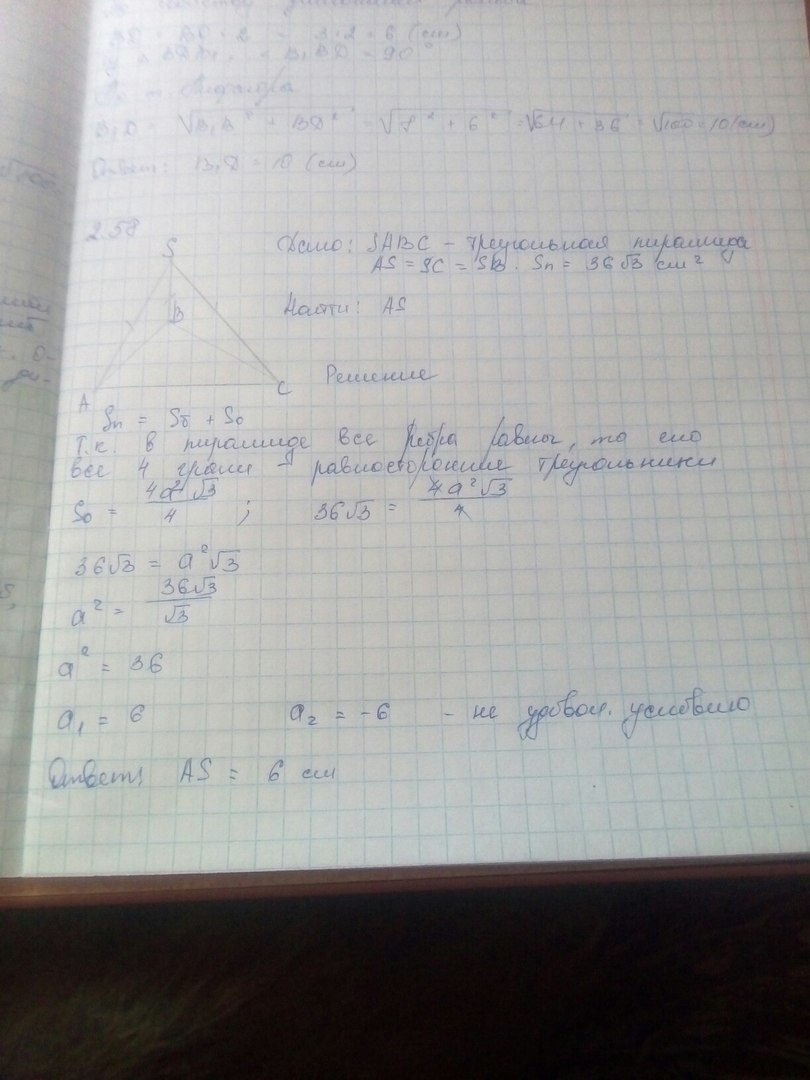 BD = BD · 2 = 3·2 = 6 (см)
B₁BD = 90°
B₁D = √B₁B² + BD² = √8² + 6² = √64 + 36 = √100 = 10 (см)
Ответ: B₁D = 10 (см)
2.58
S
Дано: SABC – треугольная пирамида
AS = SC = SB. Sп = 36√3 см²
B
Найти: AS
A
C
Решение
Sп = Sб + So
Т.к. в пирамиде все ребра равны, то
все 4 грани – равносторонние треугольники
So = 4a²√3/4 ; 36√3 = 4a²√3/4
36√3 = a²√3
a² = 36√3/√3
a² = 36
a₁ = 6 a₂ = -6 - не удовол. условию
Ответ: AS = 6 см